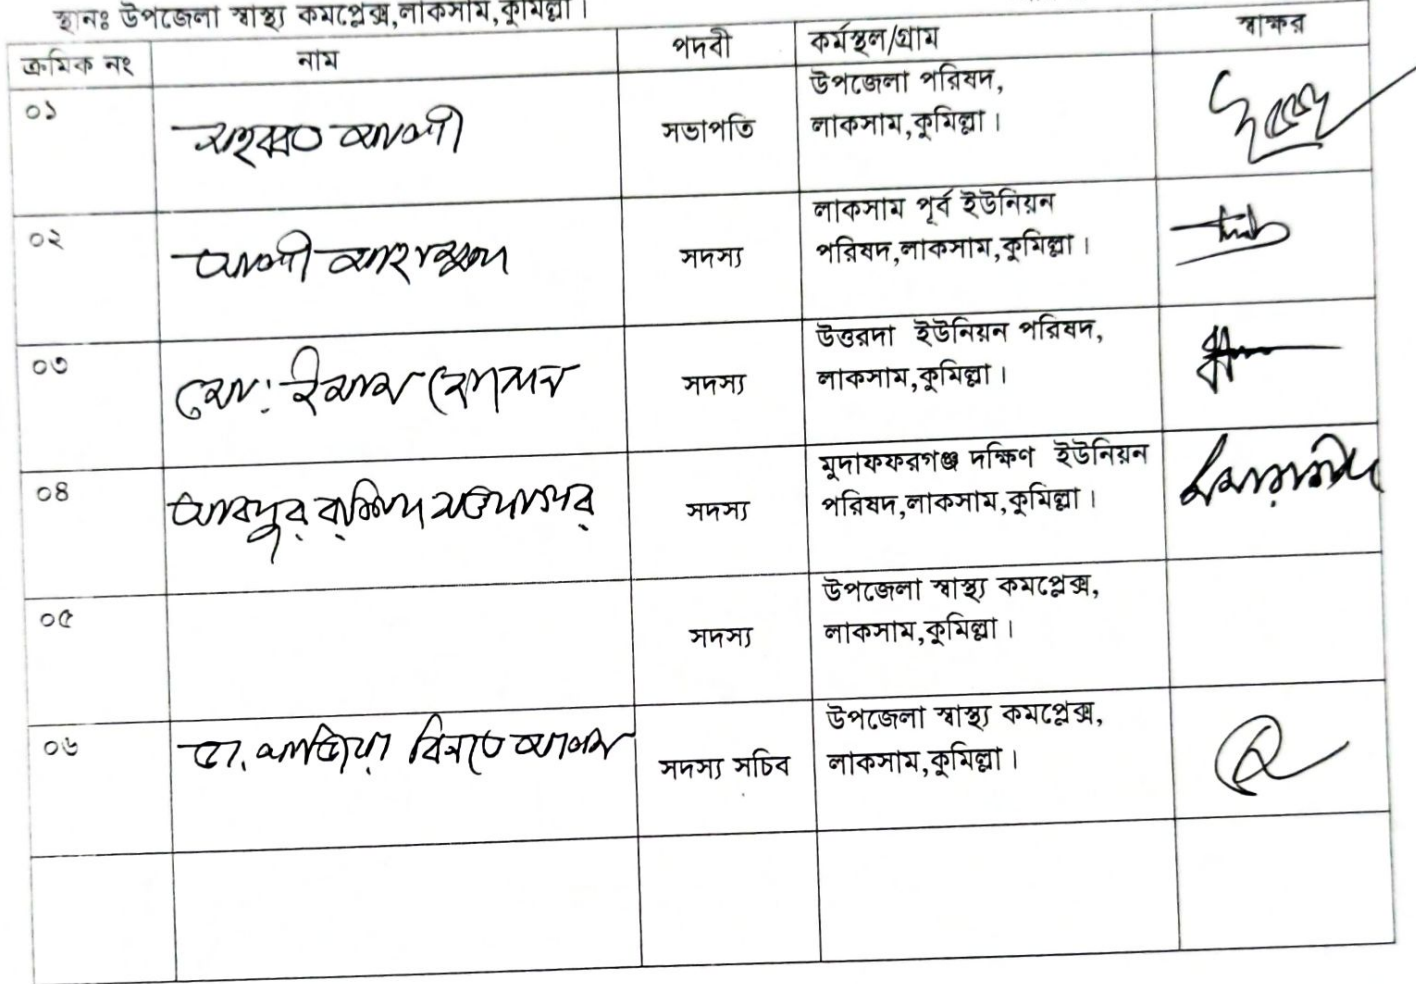 স্থানঃ উপজেলা স্বাস্থ্য কমপ্লেক্স,লাকসাম,কুমিল্লা।
ক্রমিক নং নাম পদবী কর্মস্থল/গ্রাম স্বাক্ষর
০১ মহব্বত আলী সভাপতি উপজেলা পরিষদ,
লাকসাম,কুমিল্লা।
০২ আলী আহাম্মদ সদস্য লাকসাম পূর্ব ইউনিয়ন
পরিষদ,লাকসাম,কুমিল্লা।
০৩ মো: ইমাম হোসেন সদস্য উত্তরদা ইউনিয়ন পরিষদ,
লাকসাম,কুমিল্লা।
০৪ আবদুর রশিদ সওদাগর সদস্য মুদাফফরগঞ্জ দক্ষিণ ইউনিয়ন
পরিষদ,লাকসাম,কুমিল্লা।
০৫ সদস্য উপজেলা স্বাস্থ্য কমপ্লেক্স,
লাকসাম,কুমিল্লা।
০৬ ডা. নাজিয়া বিনতে আলম সদস্য সচিব উপজেলা স্বাস্থ্য কমপ্লেক্স,
লাকসাম,কুমিল্লা।